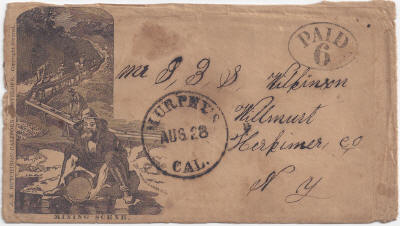 PAID
6
Mr J B S Wilkinson
Wilmurt
Herkimer Co
N Y
MURPHY'S
AUG 28
CAL.
MINING SCENE.